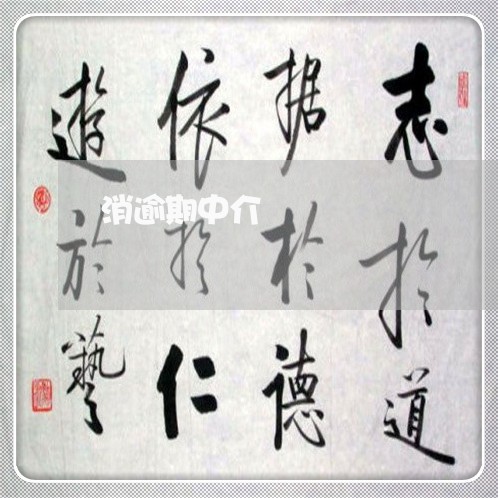 志於道
据於德
依於仁
遊於藝
消逾期中介